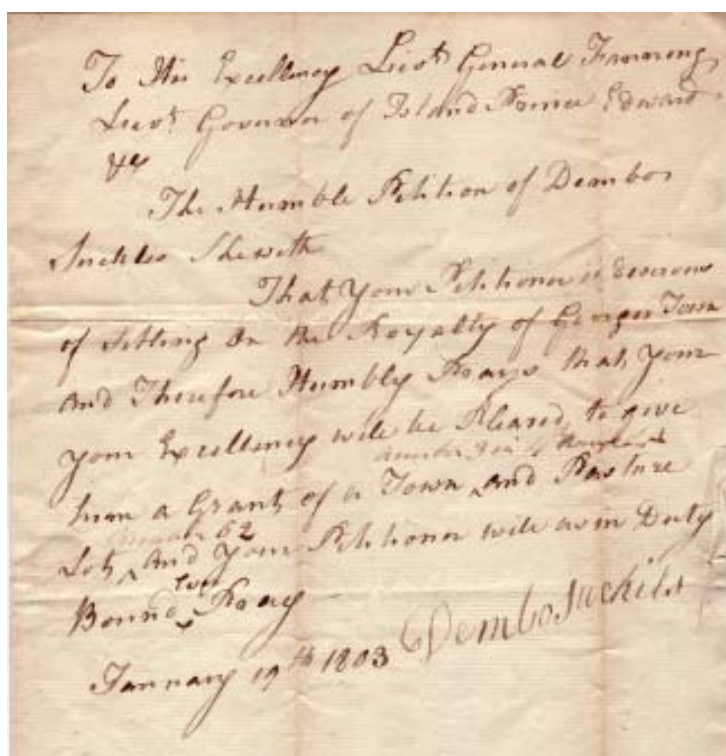 To His Excellency Lieut General Fanning
Lieut Governor of Island Prince Edward
&c
The Humble Petition of Dembo
Suckles Sheweth
That Your Petitioner is Desirous
of Setling in the Royalty of George Town
and Therefore Humbly Prays that your
your Excellency will be Pleased to give
number
him a Grant of a Town and Pasture
number 62
Lot and your Petitioner will as in Duty
ever
Bound Pray
January 19th 1803 Dembo Suckles